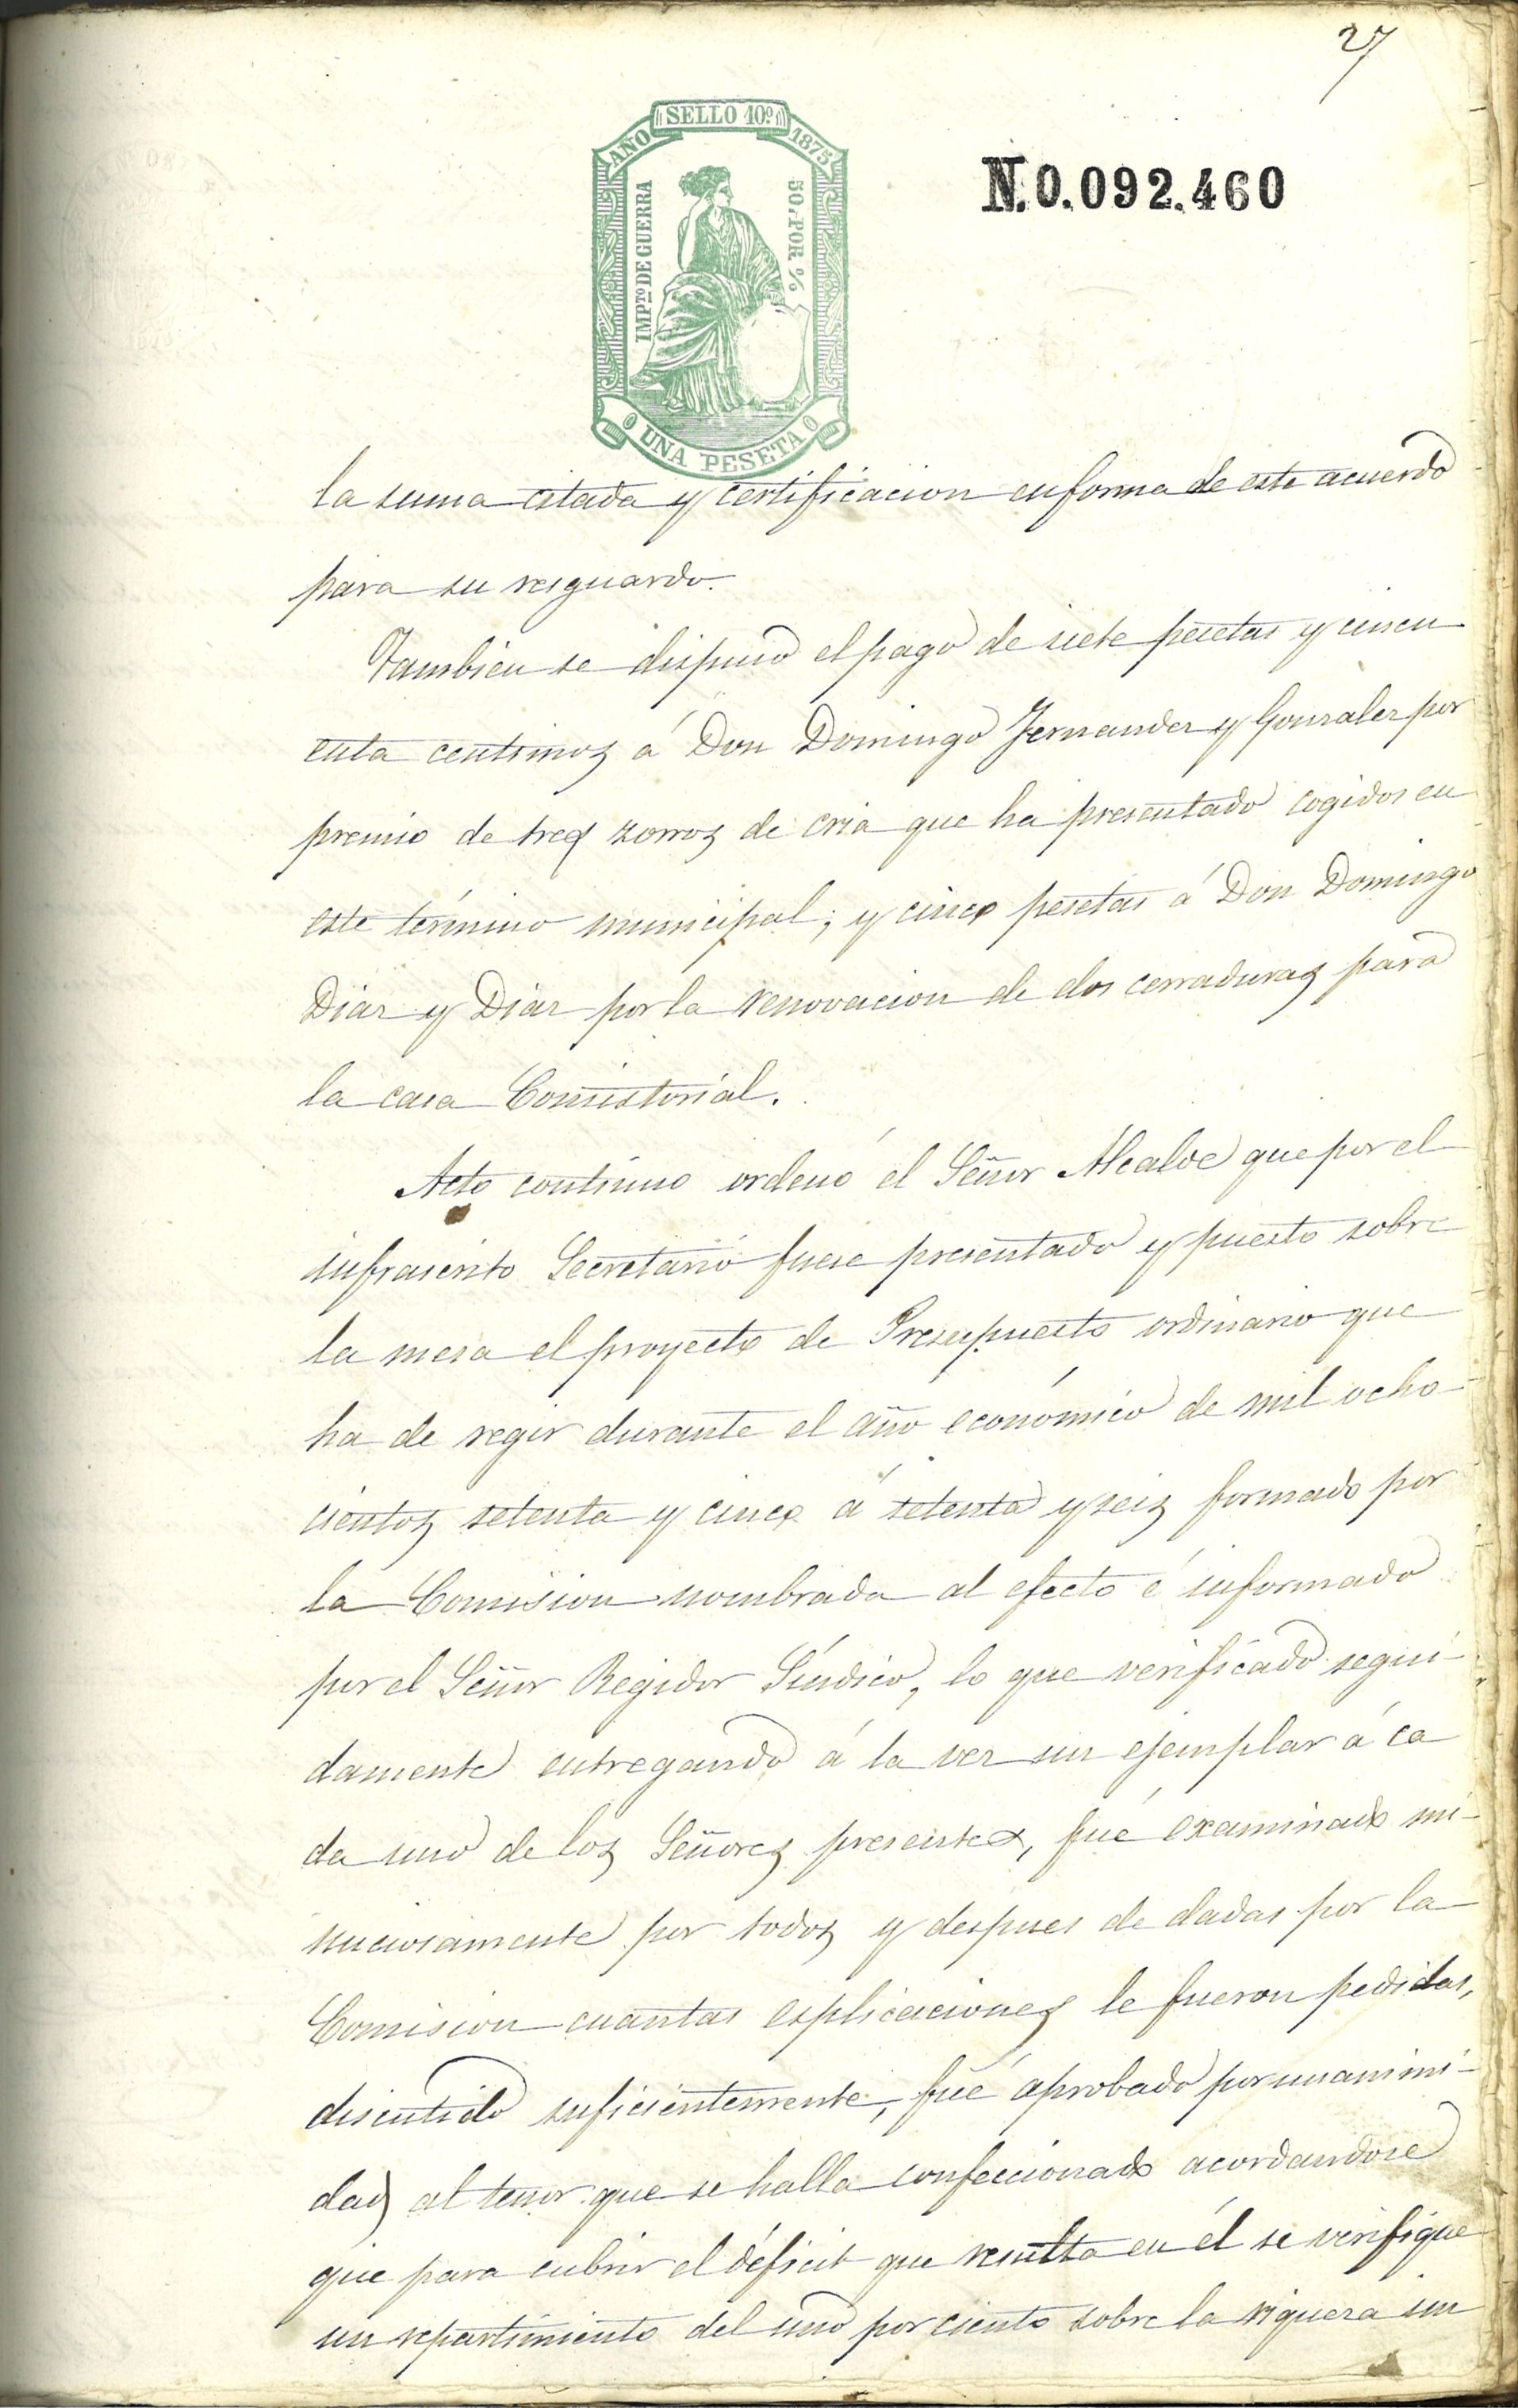 27
SELLO 10º
AÑO 1875
IMPTO DE GUERRA
50 POR %
UNA PESETA
N.0.092.460
la suma citada y certificacion en forma de este acuerdo
para su resguardo.
Tambien se dispuso el pago de siete pesetas y cincu
enta centimos á Don Domingo Fernandez y Gonzalez por
premio de tres zorros de cria que ha presentado cogidos en
este término municipal; y cinco pesetas á Don Domingo
Diaz y Diaz por la renovacion de dos cerraduras para
la casa Consistorial.
Acto continuo ordenó el Señor Alcalde que por el
infrascrito Secretario fuese presentado y puesto sobre
la mesa el proyecto de Presupuesto ordinario que
ha de regir durante el año económico de mil ocho-
cientos setenta y cinco á setenta y seis formado por
la Comision nombrada al efecto é informado
por el Señor Regidor Síndico, lo que verificado segui-
damente entregando á la vez un ejemplar á ca
da uno de los Señores presentes, fué examinado mi-
nuciosamente por todos y despues de dadas por la
Comision cuantas esplicaciones le fueron pedidas,
discutido suficientemente, fué aprobado por unanimi-
dad al tenor que se halla confeccionado acordandose
que para cubrir el déficit que resulta en él se verifique
un repartimiento del uno por ciento sobre la riqueza im